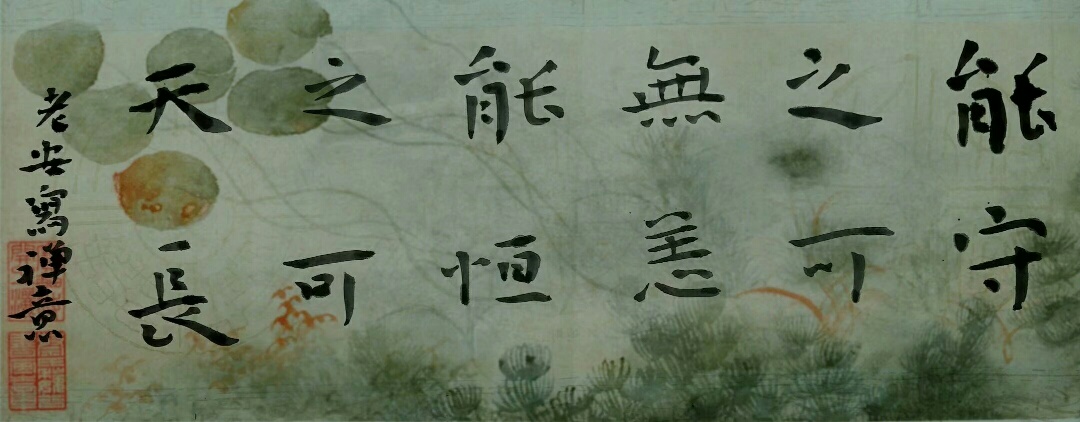 能守
之可
無恙
能恒
之可
天長
老安寫禅意